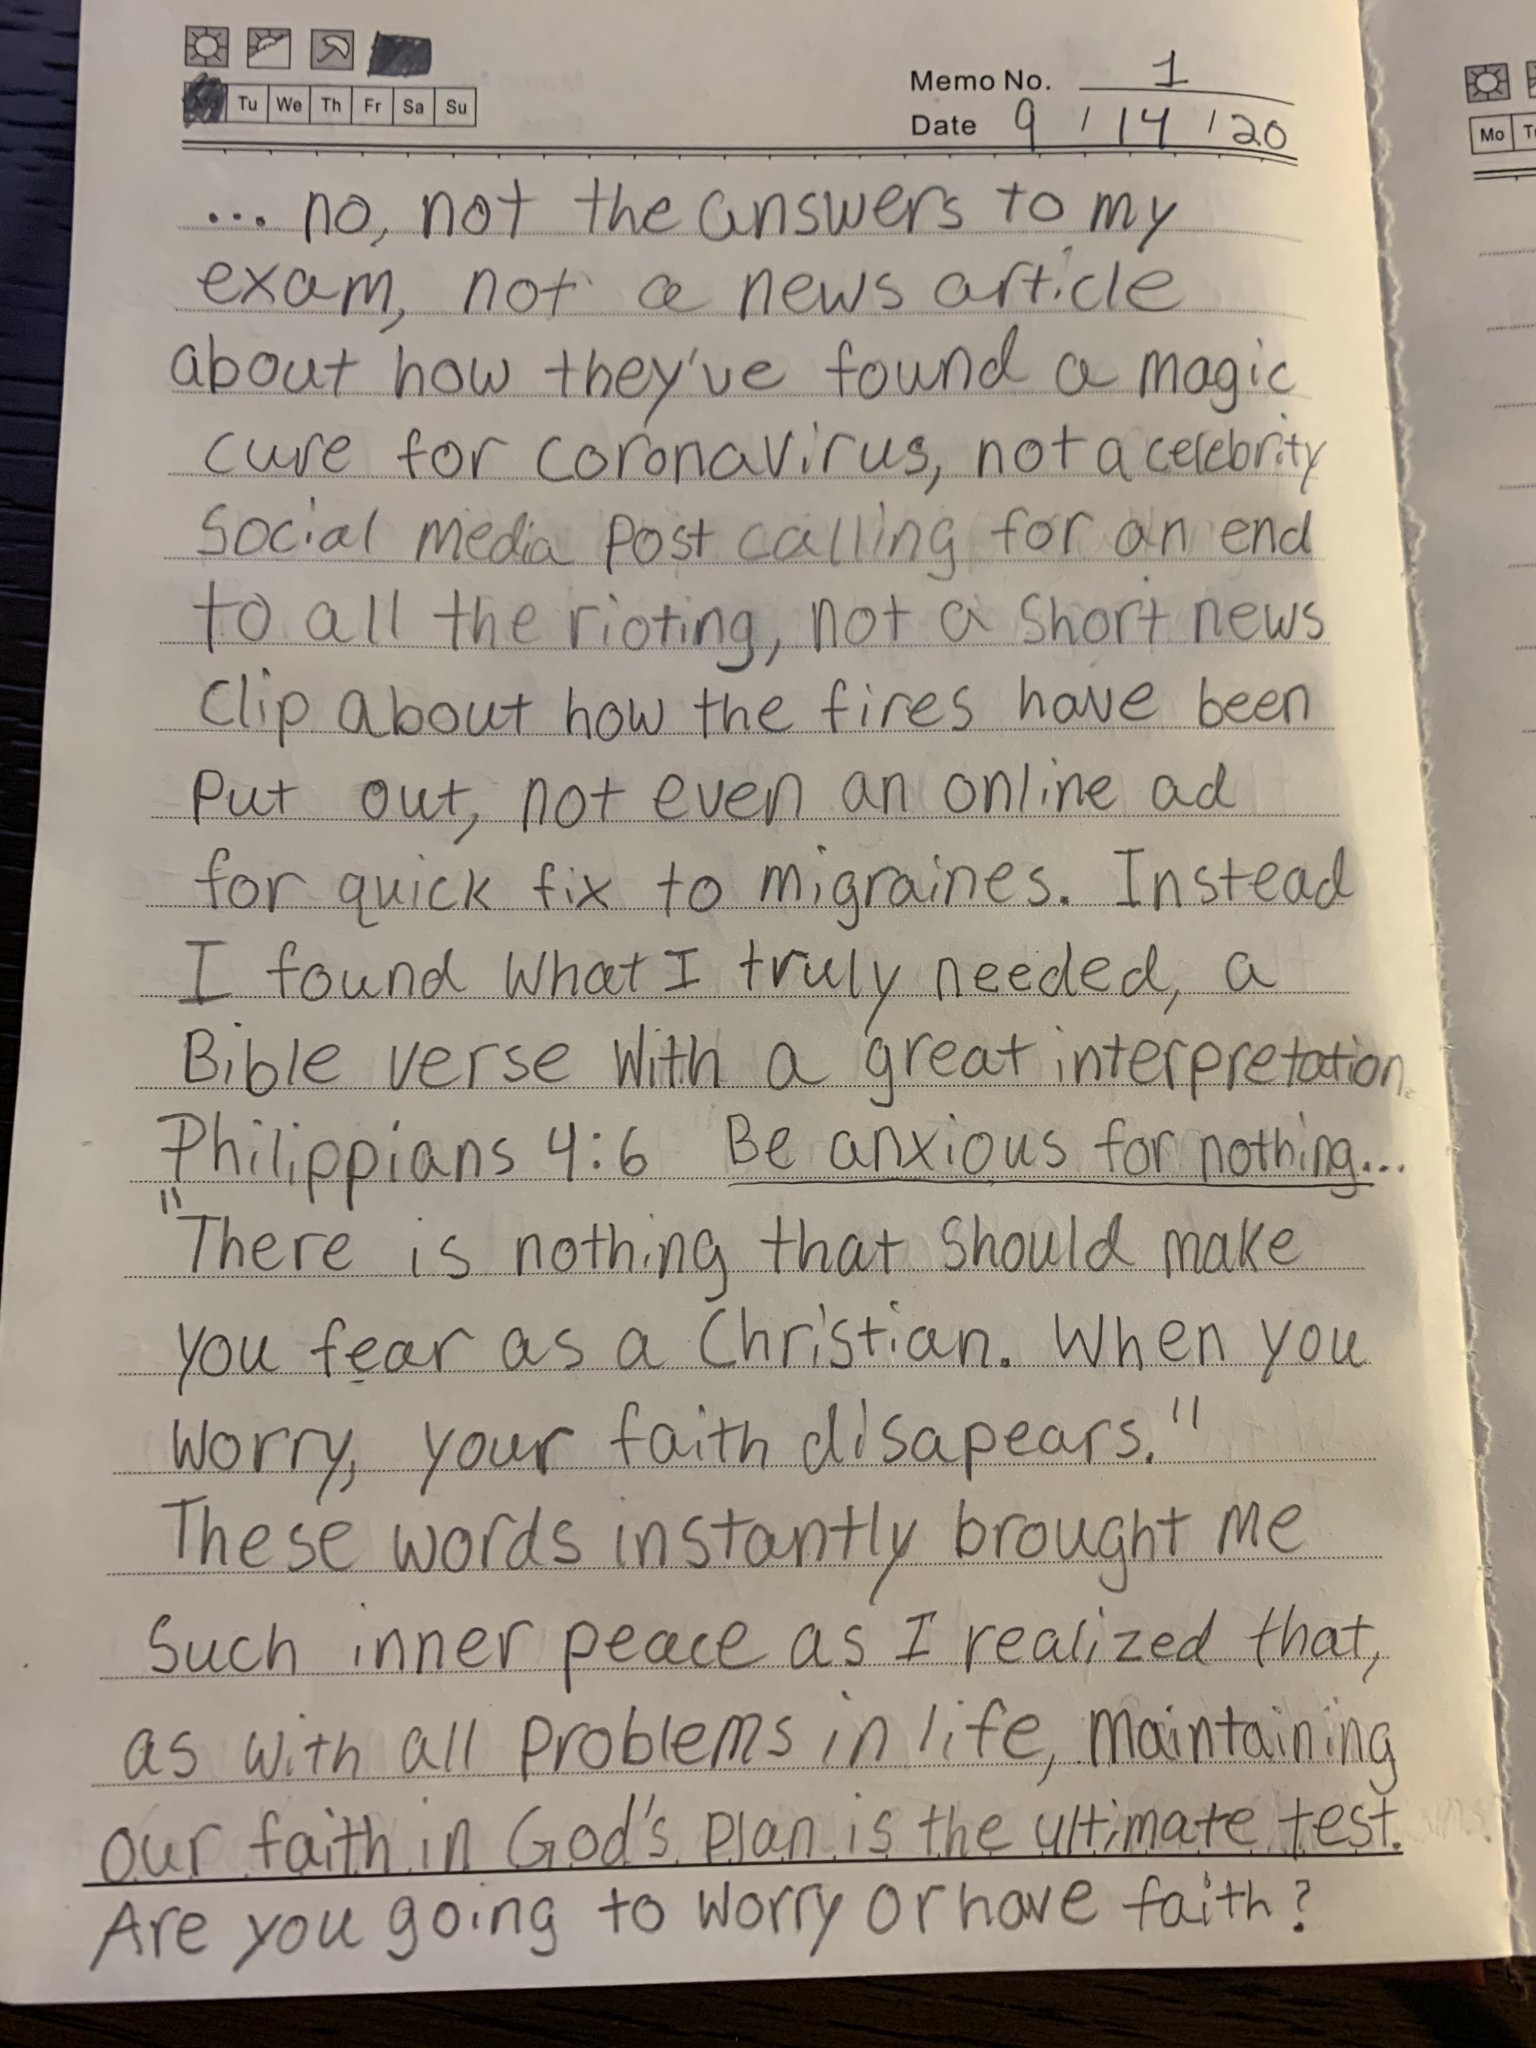 Memo No. 1
Tu We Th Fr Sa Su
Date 9 / 14 / 20
... no, not the answers to my
exam, not a news article
about how they've found a magic
cure for coronavirus, not a celebrity
social media post calling for an end
to all the rioting, not a short news
clip about how the fires have been
put out, not even an online ad
for quick fix to migraines. Instead
I found what I truly needed, a
Bible verse with a great interpretation.
Philippians 4:6 Be anxious for nothing...
"There is nothing that should make
you fear as a Christian. When you
worry, your faith disapears."
These words instantly brought me
such inner peace as I realized that,
as with all problems in life, maintaining
our faith in God's plan is the ultimate test.
Are you going to worry or have faith?
Mo